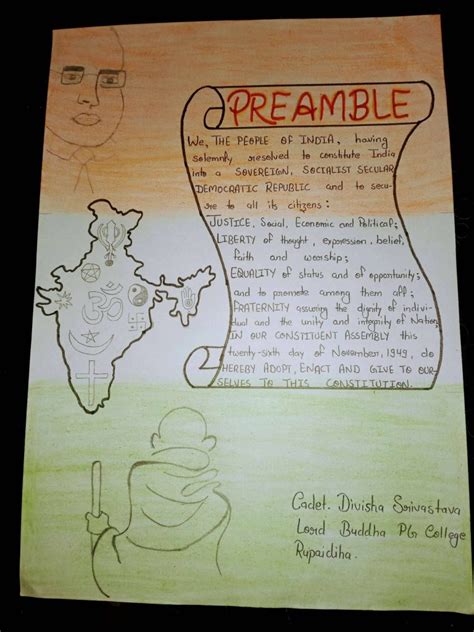 PREAMBLE
We, THE PEOPLE OF INDIA, having
solemnly resolved to constitute India
into a SOVEREIGN, SOCIALIST SECULAR
DEMOCRATIC REPUBLIC and to secu-
re to all its citizens :
JUSTICE, Social, Economic and Political;
LIBERTY of thought, expression, belief,
faith and worship;
EQUALITY of status and of opportunity;
and to promote among them all;
FRATERNITY assuring the dignity of indivi-
dual and the unity and integrity of Nation;
IN OUR CONSTITUENT ASSEMBLY this
twenty-sixth day of November, 1949, do
HEREBY ADOPT, ENACT AND GIVE TO OUR-
SELVES TO THIS CONSTITUTION.
Cadet. Divisha Srivastava
Lord Buddha PG College
Rupaidiha.